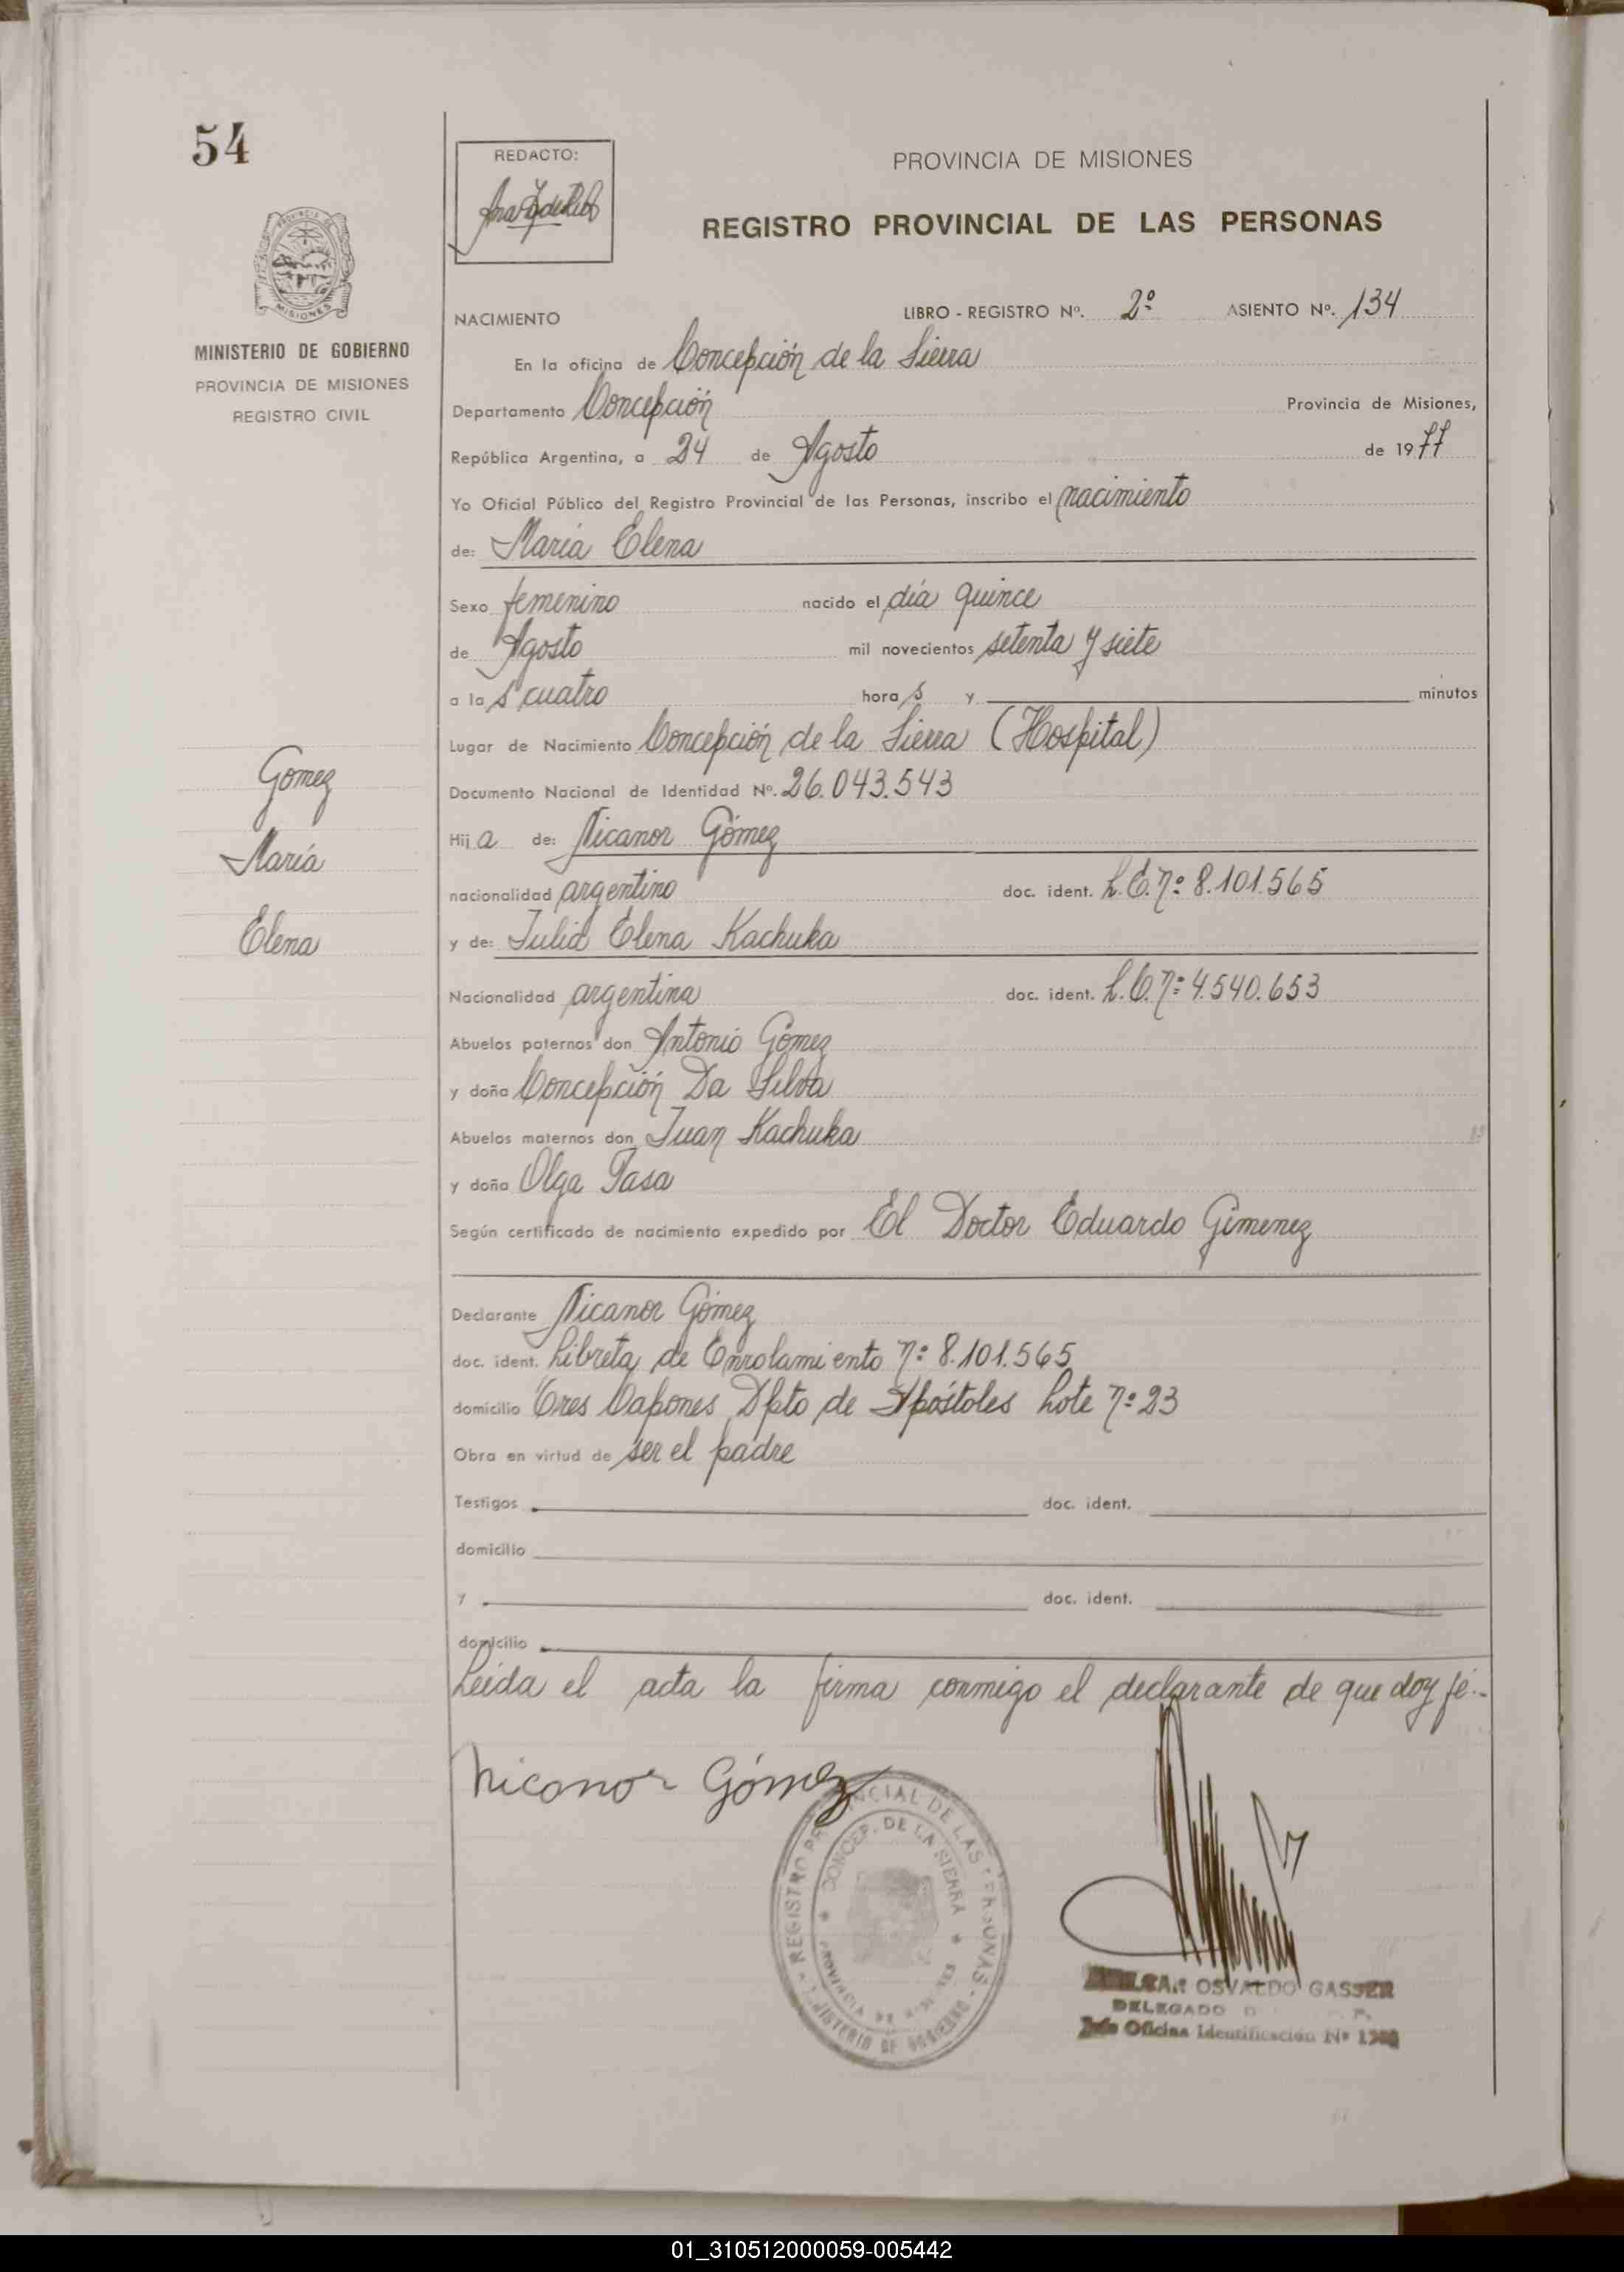 54
REDACTO:
PROVINCIA DE MISIONES
REGISTRO PROVINCIAL DE LAS PERSONAS
MISIONES
MINISTERIO DE GOBIERNO
PROVINCIA DE MISIONES
REGISTRO CIVIL
NACIMIENTO LIBRO - REGISTRO Nº. 2º ASIENTO Nº. 134
En la oficina de Concepción de la Sierra
Departamento Concepción Provincia de Misiones,
República Argentina, a 24 de Agosto de 1977
Yo Oficial Público del Registro Provincial de las Personas, inscribo el nacimiento
de: María Elena
Sexo femenino nacido el día quince
de Agosto mil novecientos setenta y siete
a las cuatro horas y minutos
Lugar de Nacimiento Concepción de la Sierra (Hospital)
Documento Nacional de Identidad Nº. 26.043.543
Gomez
María
Elena
Hija de: Nicanor Gómez
nacionalidad argentino doc. ident. L.E.nº 8.101.565
y de: Julia Elena Kachuka
Nacionalidad argentina doc. ident. L.C.nº 4.540.653
Abuelos paternos don Antonio Gómez
y doña Concepción Da Silva
Abuelos maternos don Juan Kachuka
y doña Olga Tasa
Según certificado de nacimiento expedido por El Doctor Eduardo Gimenez
Declarante Nicanor Gómez
doc. ident. Libreta de Enrolamiento nº 8.101.565
domicilio Tres Capones Dpto de Apóstoles Lote nº 23
Obra en virtud de ser el padre
Testigos doc. ident.
domicilio
y doc. ident.
domicilio
Leida el acta la firma conmigo el declarante de que doy fé.-
Nicanor Gómez
REGISTRO PROVINCIAL DE LAS PERSONAS
CONCEP. DE LA SIERRA
PROVINCIA DE MISIONES
MINISTERIO DE GOBIERNO
OSVALDO GASSER
DELEGADO
Jefe Oficina Identificación Nº
01_310512000059-005442